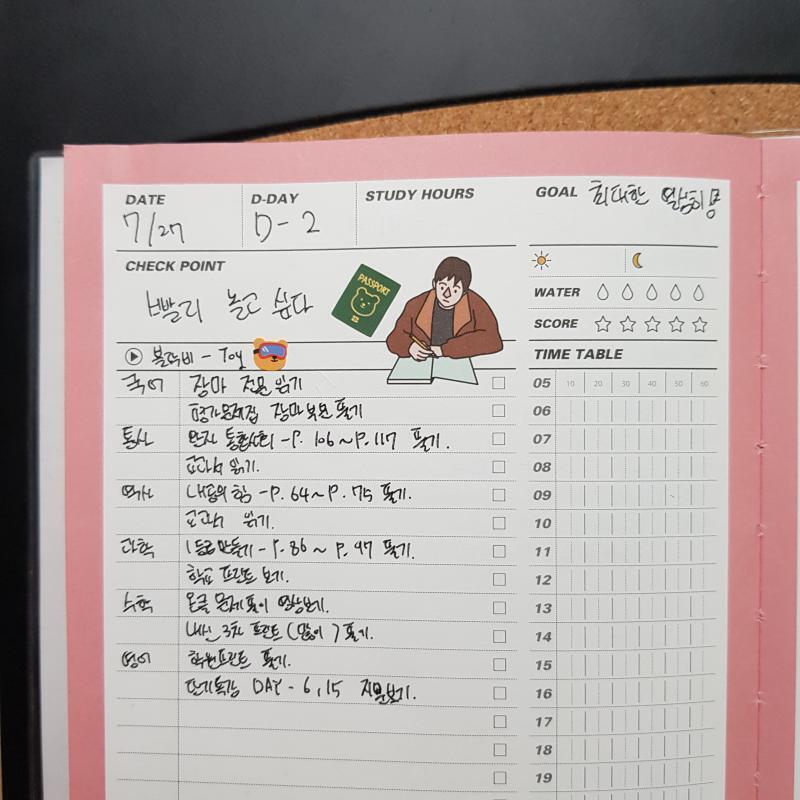 DATE
7/27
D-DAY
D-2
STUDY HOURS
GOAL 최대한 열심히
CHECK POINT
빨리 놀고 싶다
PASSPORT
WATER
SCORE
볼빨간 - Toy
TIME TABLE
국어 장마 전문 읽기
평가문제집 장마 부분 풀기
통사 완자 통합사회 - P. 106 ~ P. 117 풀기.
교과서 읽기.
역사 내공의 힘 - P. 64 ~ P. 75 풀기.
교과서 읽기.
과학 1등급 만들기 - P. 86 ~ P. 97 풀기.
학교 프린트 보기.
수학 문제풀이 영상보기.
내신 3차 프린트 (많이) 풀기.
영어 학원프린트 풀기.
단기특강 DAY - 6, 15 지문보기.
05 10 20 30 40 50 60
06
07
08
09
10
11
12
13
14
15
16
17
18
19